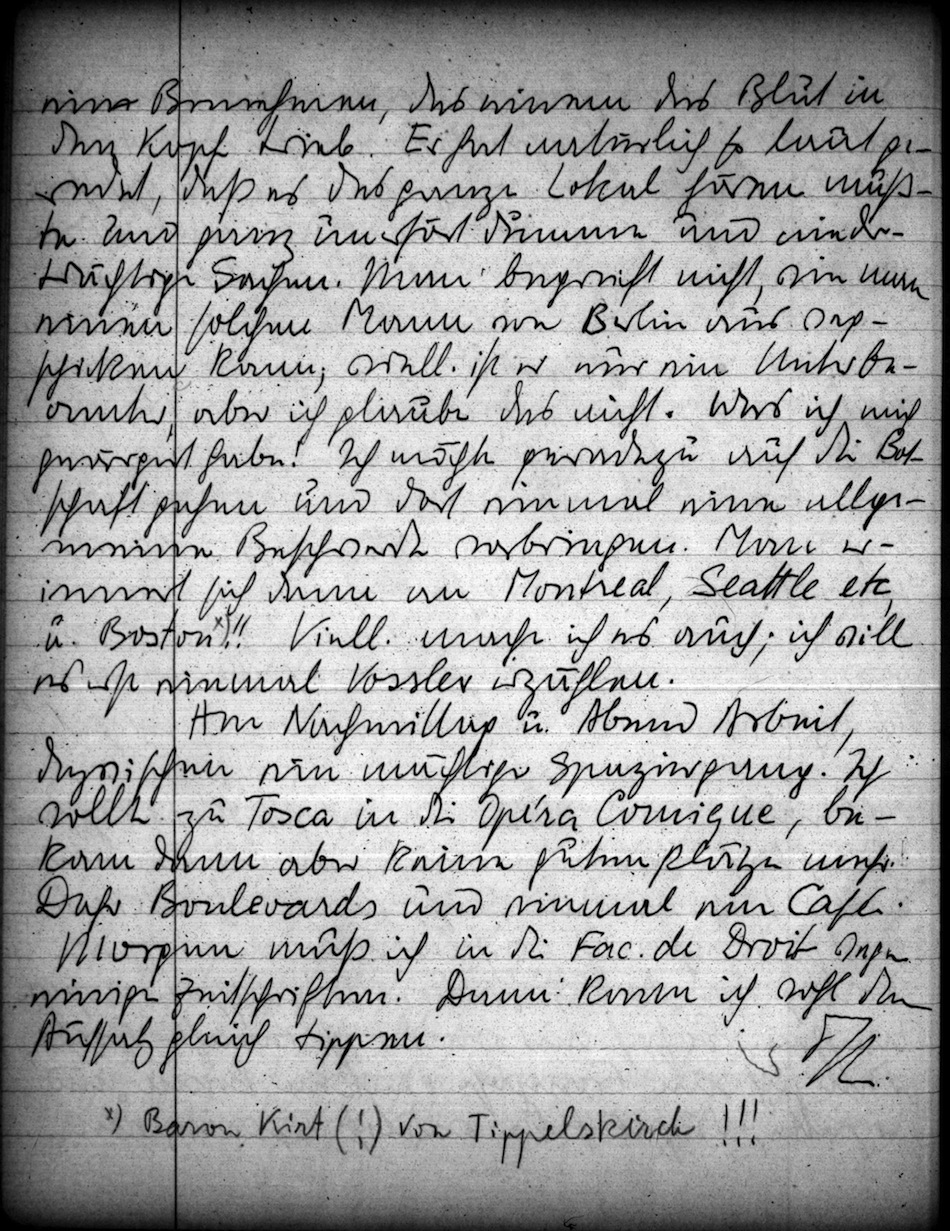 ein Benehmen, das einem das Blut in
den Kopf trieb. Er hat natürlich so laut ge-
redet, daß es das ganze Lokal hören muß-
te und ganz unerhört dumme und nieder-
trächtige Sachen. Man begreift nicht, wie man
einen solchen Mann von Berlin aus weg-
schicken kann; viell. ist er nur ein Unterbe-
amter, aber ich glaube das nicht. Was ich mich
geärgert habe! Ich möchte geradezu auf die Bot-
schaft gehen und dort einmal eine allge-
meine Beschwerde vorbringen. Man er-
innert sich dann an Montreal, Seattle etc,
u. Boston x)!! Viell. mache ich es auch; ich will
es erst einmal Vossler erzählen.
Am Nachmittag u. Abend Arbeit,
dazwischen ein mächtiger Spaziergang. Ich
wollte zu Tosca in die Opéra Comique, be-
kam dann aber keine guten Plätze mehr.
Daher Boulevards und einmal ein Café.
Morgen muß ich in die Fac. de Droit wegen
einiger Zeitschriften. Dann kann ich wohl den
Aufsatz gleich tippen.
x) Baron Kirt (!) von Tippelskirch !!!